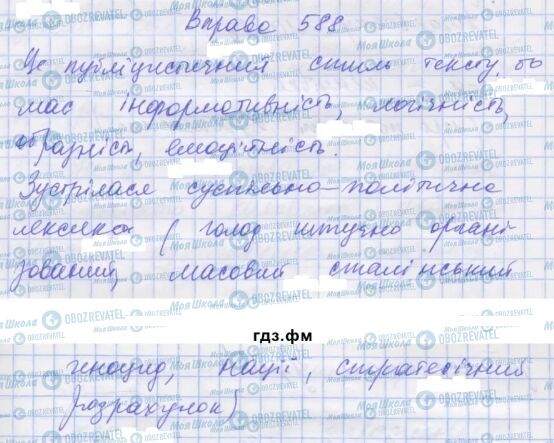 Вправа 588
Це публіцистичний стиль тексту, бо
має інформативність, логічність,
образність, емоційність.
Зустрілася суспільно-політична
лексика (голод штучно органі
зований, масовий сталінський
гдз.фм
геноцид, нації, стратегічний
розрахунок)
МояШкола OBOZREVATEL